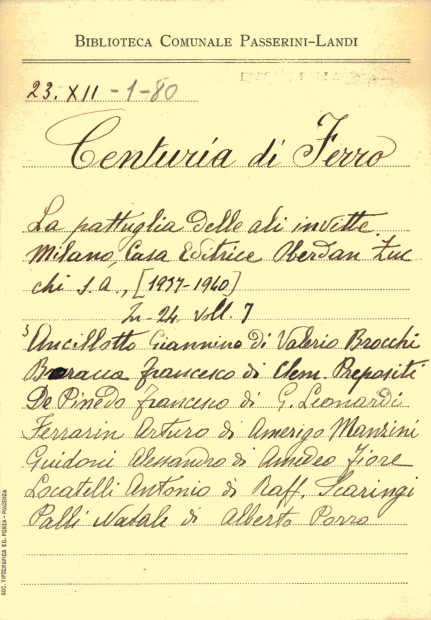 BIBLIOTECA COMUNALE PASSERINI-LANDI
23. XII - 1 - 80
Centuria di Ferro
La pattuglia delle ali invitte.
Milano, Casa Editrice Oberdan Zuc
chi s. a., [1937-1940]
In-24 voll. 7
Ancillotto Giannino di Valerio Brocchi
Baracca Francesco di Clem. Prepositi
De Pinedo Francesco di G. Leonardi
Ferrarin Arturo di Amerigo Manzini
Guidoni Alessandro di Amedeo Fiore
Locatelli Antonio di Raff. Scaringi
Palli Natale di Alberto Porro
SOC. TIPOGRAFICA ED. PORTA - PIACENZA